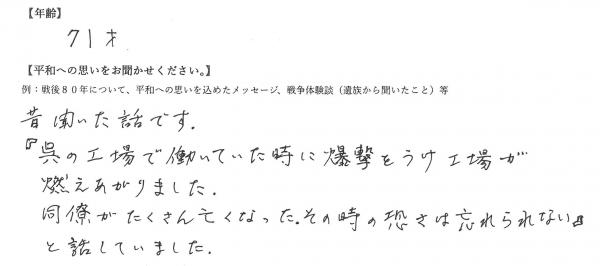 【年齢】
71才
【平和への思いをお聞かせください。】
例：戦後８０年について、平和への思いを込めたメッセージ、戦争体験談（遺族から聞いたこと）等
昔聞いた話です.
『呉の工場で働いていた時に爆撃をうけ工場が
燃えあがりました.
同僚がたくさん亡くなった.その時の恐さは忘れられない』
と話していました.